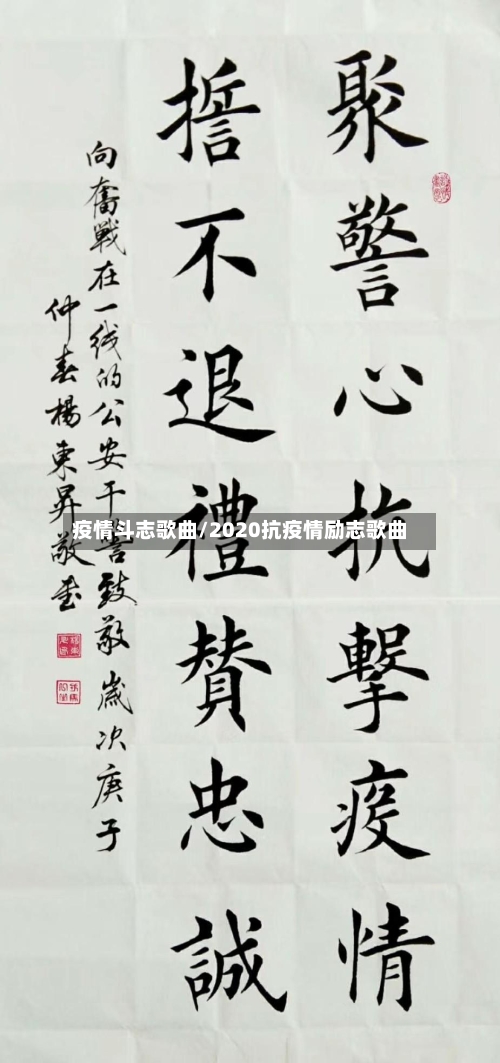 聚警心抗擊疫情
誓不退禮贊忠誠
向奮戰在一线的公安干警致敬 歲次庚子
仲春楊東昇敬書
疫情斗志歌曲/2020抗疫情励志歌曲